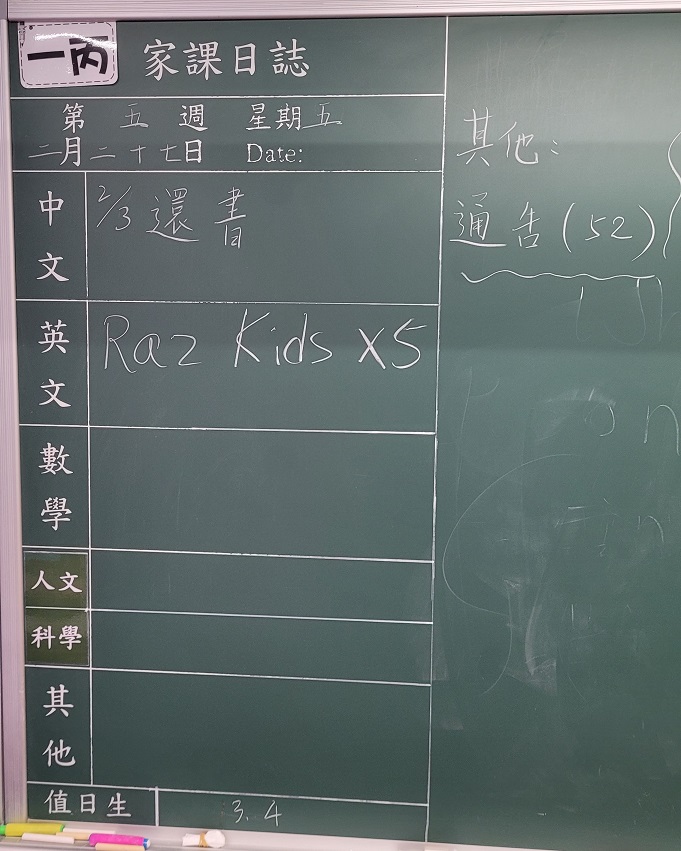 一丙 家課日誌
第五週 星期五
二月二十七日 Date:
中文 2/3 還書
英文 Raz Kids x5
數學
人文
科學
其他
值日生 3.4
其他:
通告(52)